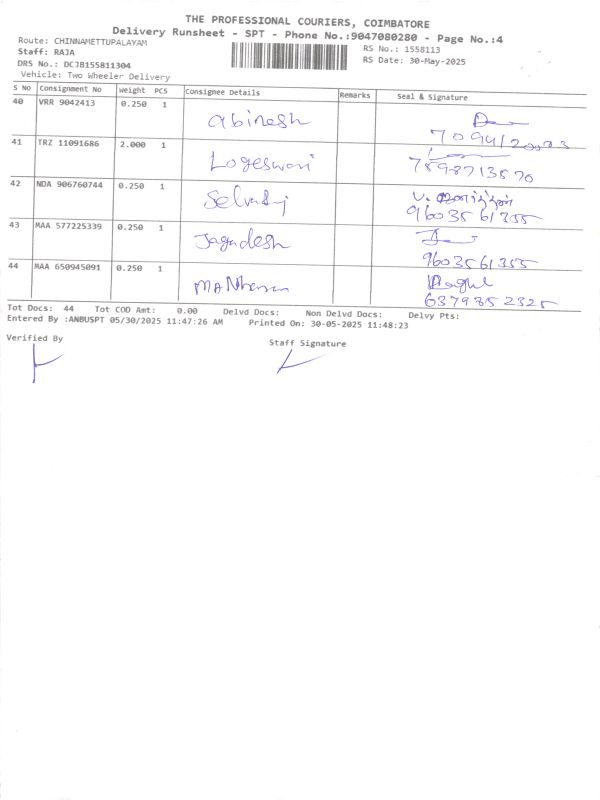 THE PROFESSIONAL COURIERS, COIMBATORE
Delivery Runsheet - SPT - Phone No.:9047080280 - Page No.:4
Route: CHINNAMETTUPALAYAM
RS No.: 1558113
Staff: RAJA
RS Date: 30-May-2025
DRS No.: DCJB155811304
Vehicle: Two Wheeler Delivery
S No Consignment No Weight PCS Consignee Details Remarks Seal & Signature
40 VRR 9042413 0.250 1 abinesh
41 TRZ 11091686 2.000 1 Logeswari
7598713570
42 NDA 906760744 0.250 1
9603561355
43 MAA 577225339 0.250 1 Jagadesh
9603561355
44 MAA 650945091 0.250 1
6379852325
Tot Docs: 44 Tot COD Amt: 0.00 Delvd Docs: Non Delvd Docs: Delvy Pts:
Entered By :ANBUSPT 05/30/2025 11:47:26 AM Printed On: 30-05-2025 11:48:23
Verified By
Staff Signature